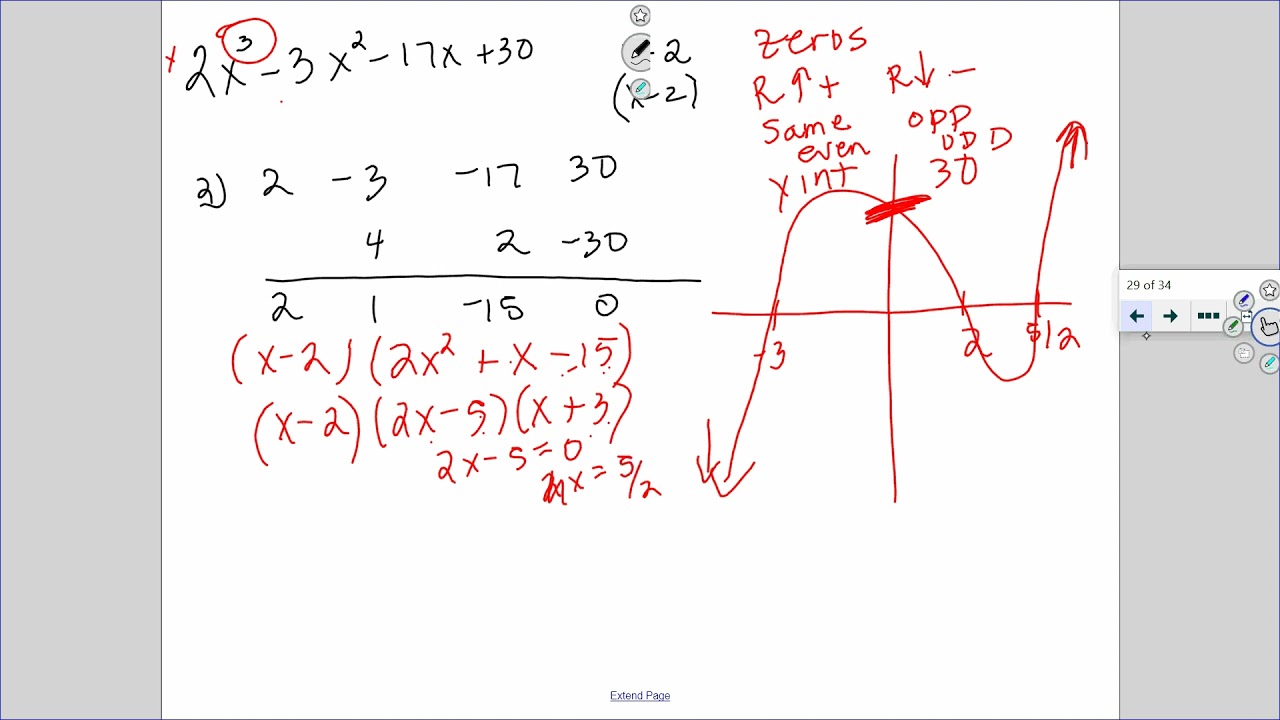 2x³ - 3x² - 17x + 30
-2
(x-2)
2) 2 -3 -17 30
4 2 -30
2 1 -15 0
(x-2)(2x² + x - 15)
(x-2)(2x-5)(x+3)
2x-5=0
x = 5/2
zeros
R↑+ R↓-
Same opp
even ODD
30
-3 2 5/2
29 of 34
Extend Page